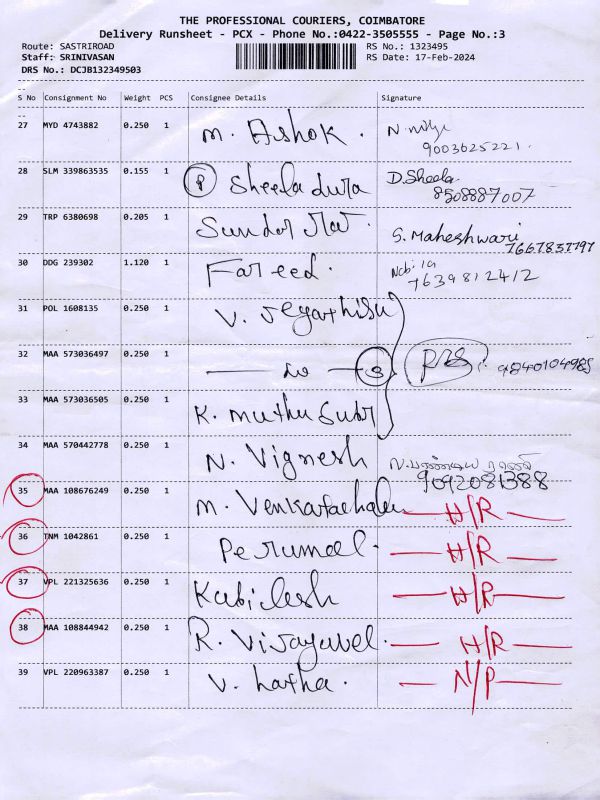 THE PROFESSIONAL COURIERS, COIMBATORE
Delivery Runsheet - PCX - Phone No.:0422-3505555 - Page No.:3
Route: SASTRIROAD RS No.: 1323495
Staff: SRINIVASAN RS Date: 17-Feb-2024
DRS No.: DCJB132349503
S No Consignment No Weight PCS Consignee Details Signature
27 MYD 4743882 0.250 1 M. Ashok.
9003625221.
28 SLM 339863535 0.155 1 P Sheela dura D. Sheela
8508887007
29 TRP 6380698 0.205 1 Sundar S. Maheshwari
7667837797
30 DDG 239302 1.120 1 Fareed.
7639812412
31 POL 1608135 0.250 1 V. Jegathisu
32 MAA 573036497 0.250 1 do 3 9840104985
33 MAA 573036505 0.250 1 K. Muthu Subr
34 MAA 570442778 0.250 1 N. Vignesh
9092081388
35 MAA 108676249 0.250 1 M. Venkatachalam H/R
36 TNM 1042861 0.250 1 Perumal. H/R
37 VPL 221325636 0.250 1 Kabilesh H/R
38 MAA 108844942 0.250 1 R. Vijayavel. H/R
39 VPL 220963387 0.250 1 V. hatha. N/P